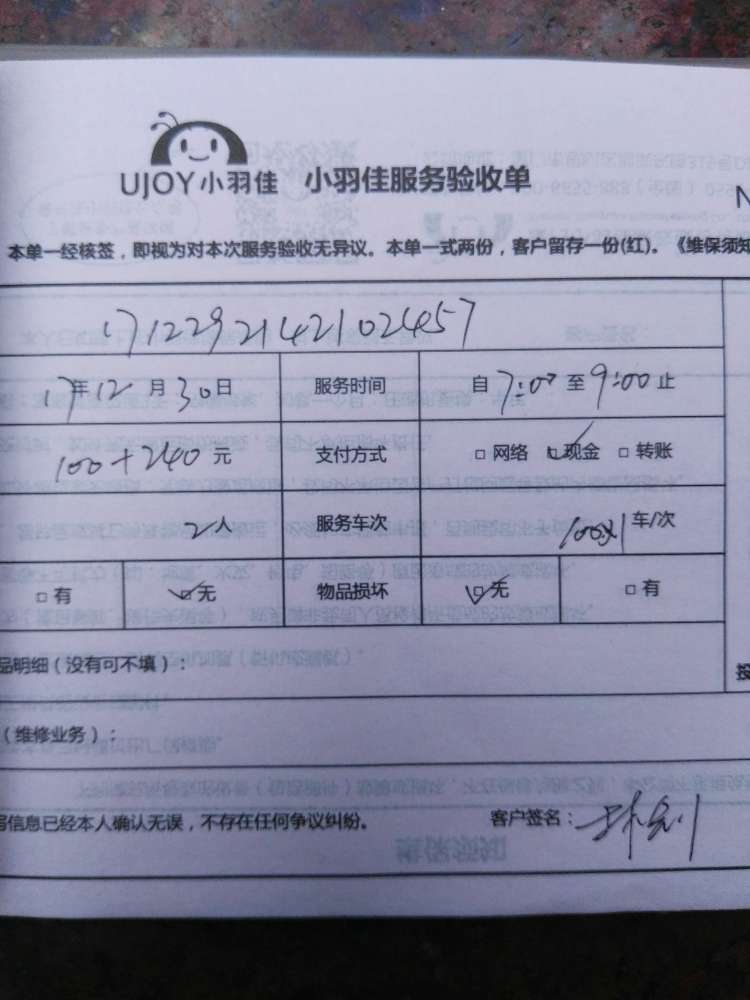 UJOY小羽佳 小羽佳服务验收单
N
本单一经核签，即视为对本次服务验收无异议。本单一式两份，客户留存一份(红)。《维保须知
1712292142102457
17年12月30日 服务时间 自7:00至9:00止
100+240元 支付方式 □网络 ☑现金 □转账
2人 服务车次 100x1车/次
□有 ☑无 物品损坏 ☑无 □有
品明细（没有可不填）：
（维修业务）：
信息已经本人确认无误，不存在任何争议纠纷。 客户签名：